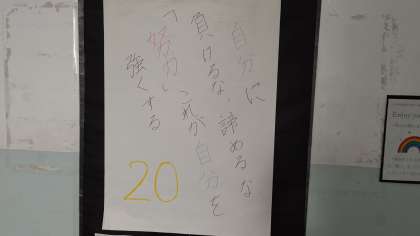 自分に
負けるな、諦めるな
「努力」これが自分を
強くする
20
Enjoy